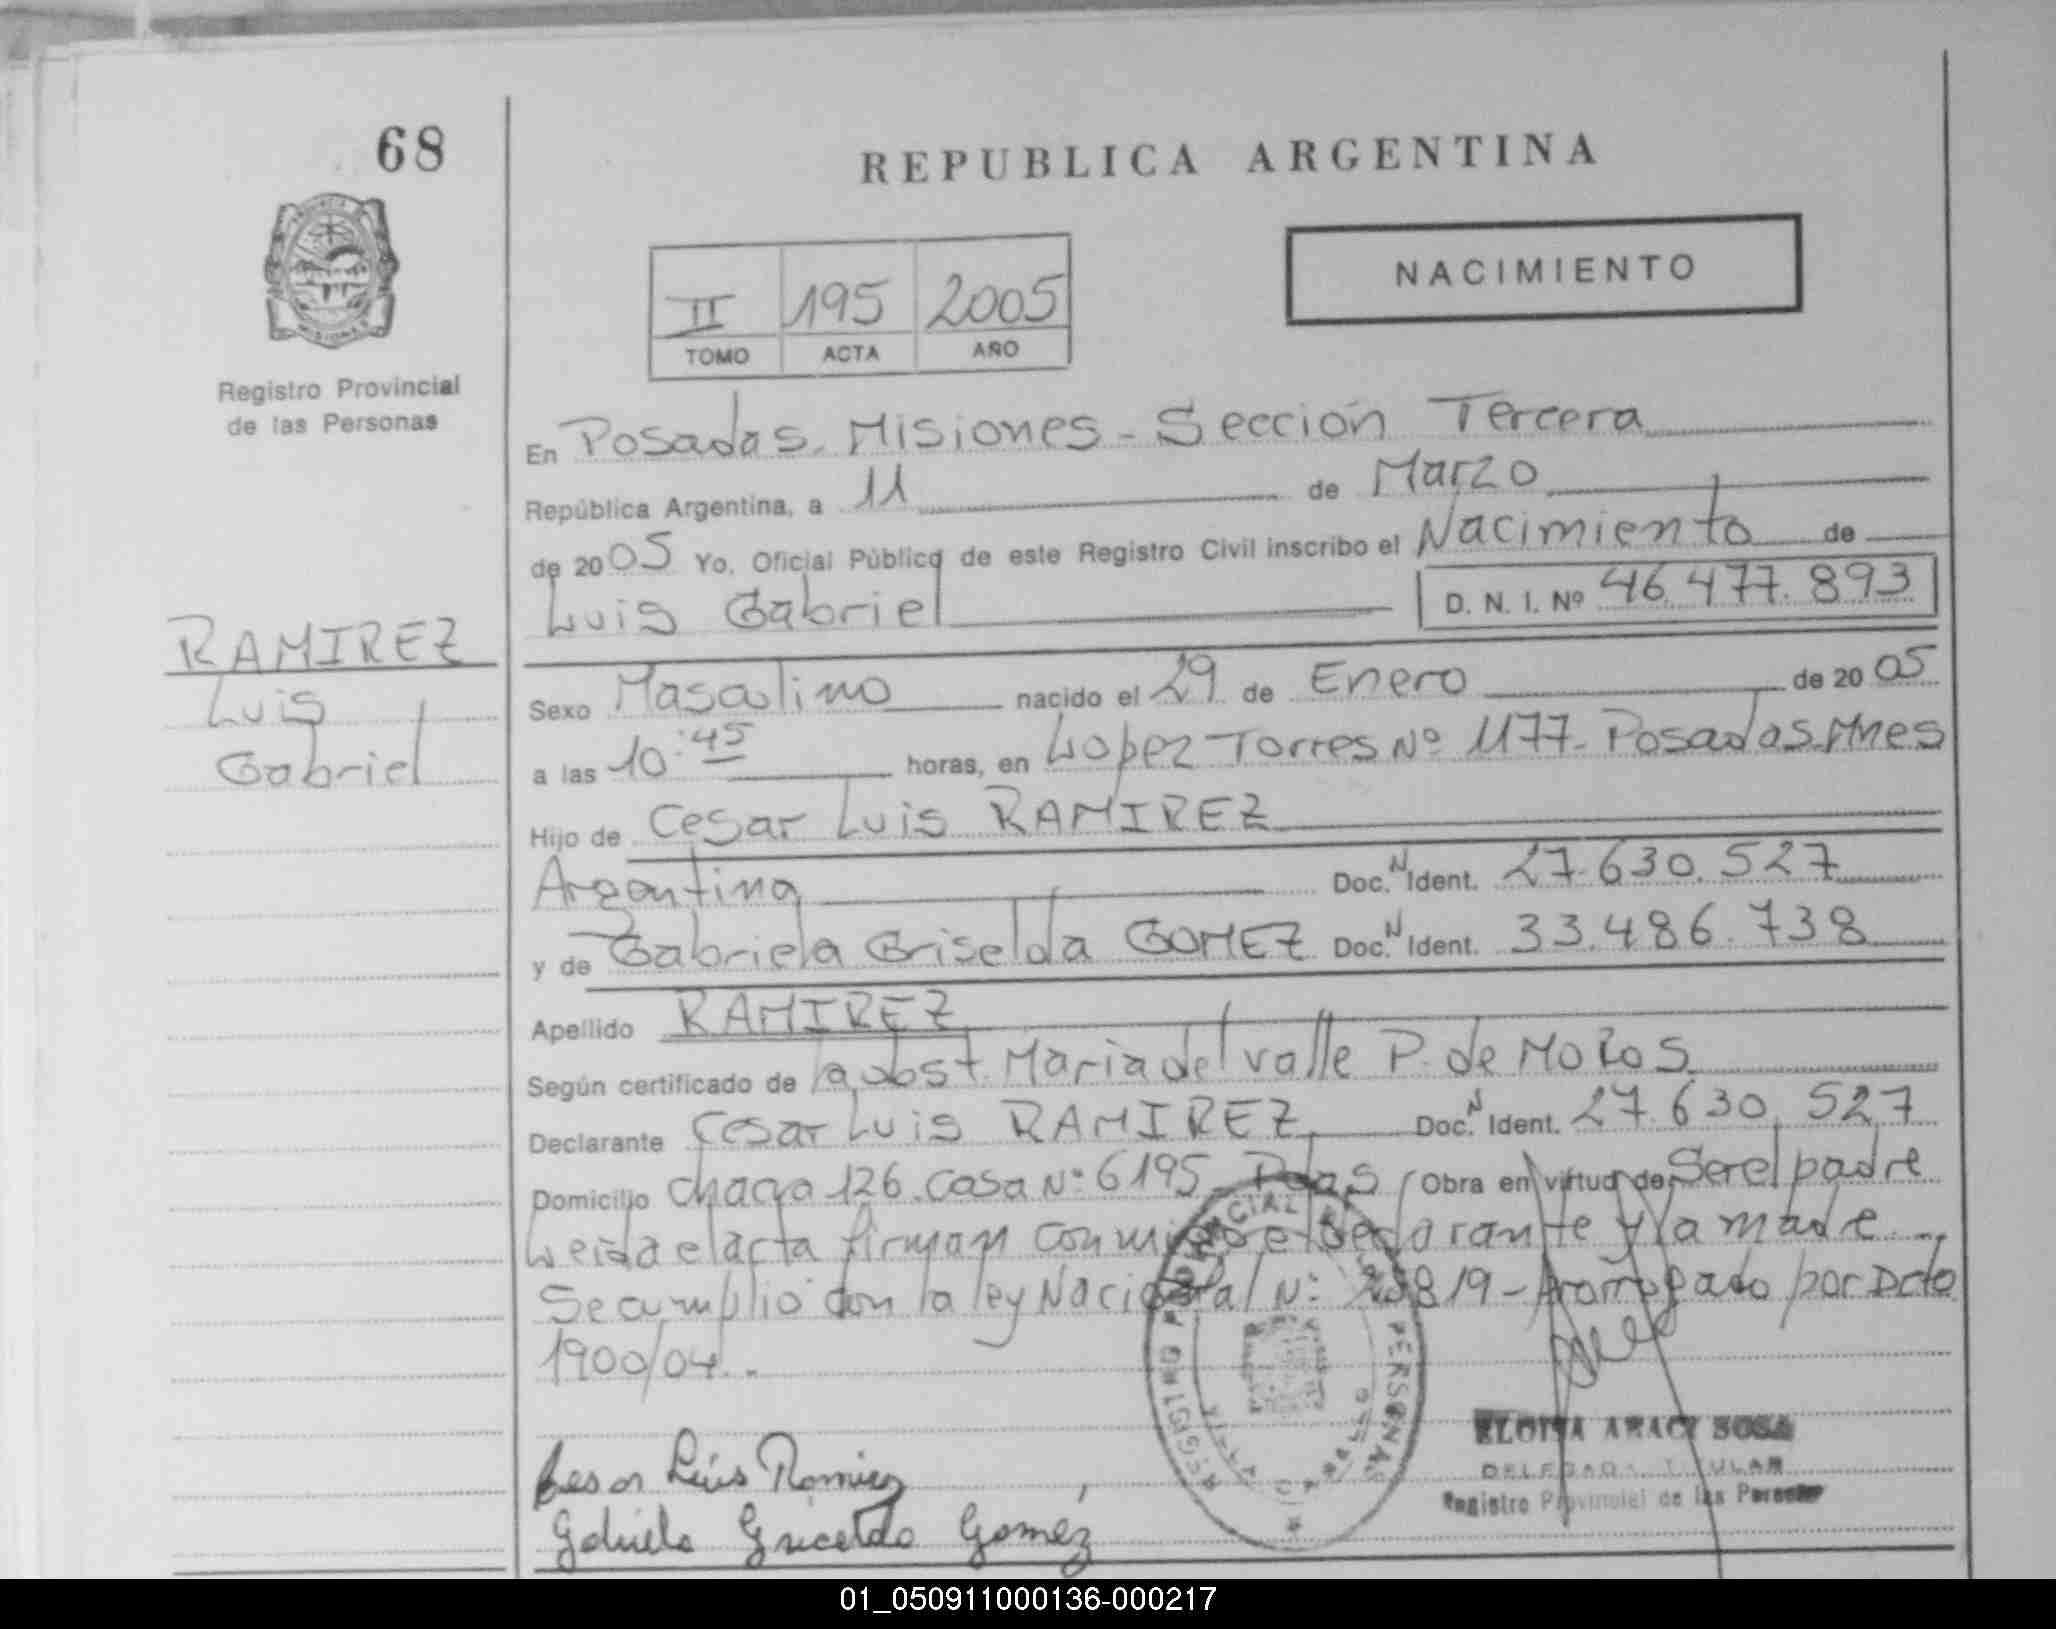 68
REPUBLICA ARGENTINA
NACIMIENTO
II 195 2005
TOMO ACTA AÑO
Registro Provincial
de las Personas
En Posadas. Misiones - Sección Tercera
República Argentina, a 11 de Marzo
de 2005 Yo, Oficial Público de este Registro Civil inscribo el Nacimiento de
Luis Gabriel D. N. I. Nº 46.477.893
RAMIREZ
Luis
Gabriel
Sexo Masculino nacido el 29 de Enero de 2005
a las 10:45 horas, en Lopez Torres Nº 1177- Posadas. Mnes
Hijo de Cesar Luis RAMIREZ
Argentina Doc. N Ident. 27.630.527
y de Gabriela Griselda GOMEZ Doc. N Ident. 33.486.738
Apellido RAMIREZ
Según certificado de la obst. Maria del Valle P. de MOROS
Declarante Cesar Luis RAMIREZ Doc. N Ident. 27.630.527
Domicilio chacra 126. Casa Nº 6195 - Pdas Obra en virtud de Ser el padre
Leida el acta firman conmigo el declarante y la madre
Se cumplio con la ley Nacional Nº: 25819 - Prorrogado por Dcto
1900/04.-
REGISTRO PROVINCIAL DE LAS PERSONAS
Cesar Luis Ramirez
Gabriela Griselda Gomez
ELOISA ARACI SOSA
DELEGADA TITULAR
Registro Provincial de las Personas
01_050911000136-000217